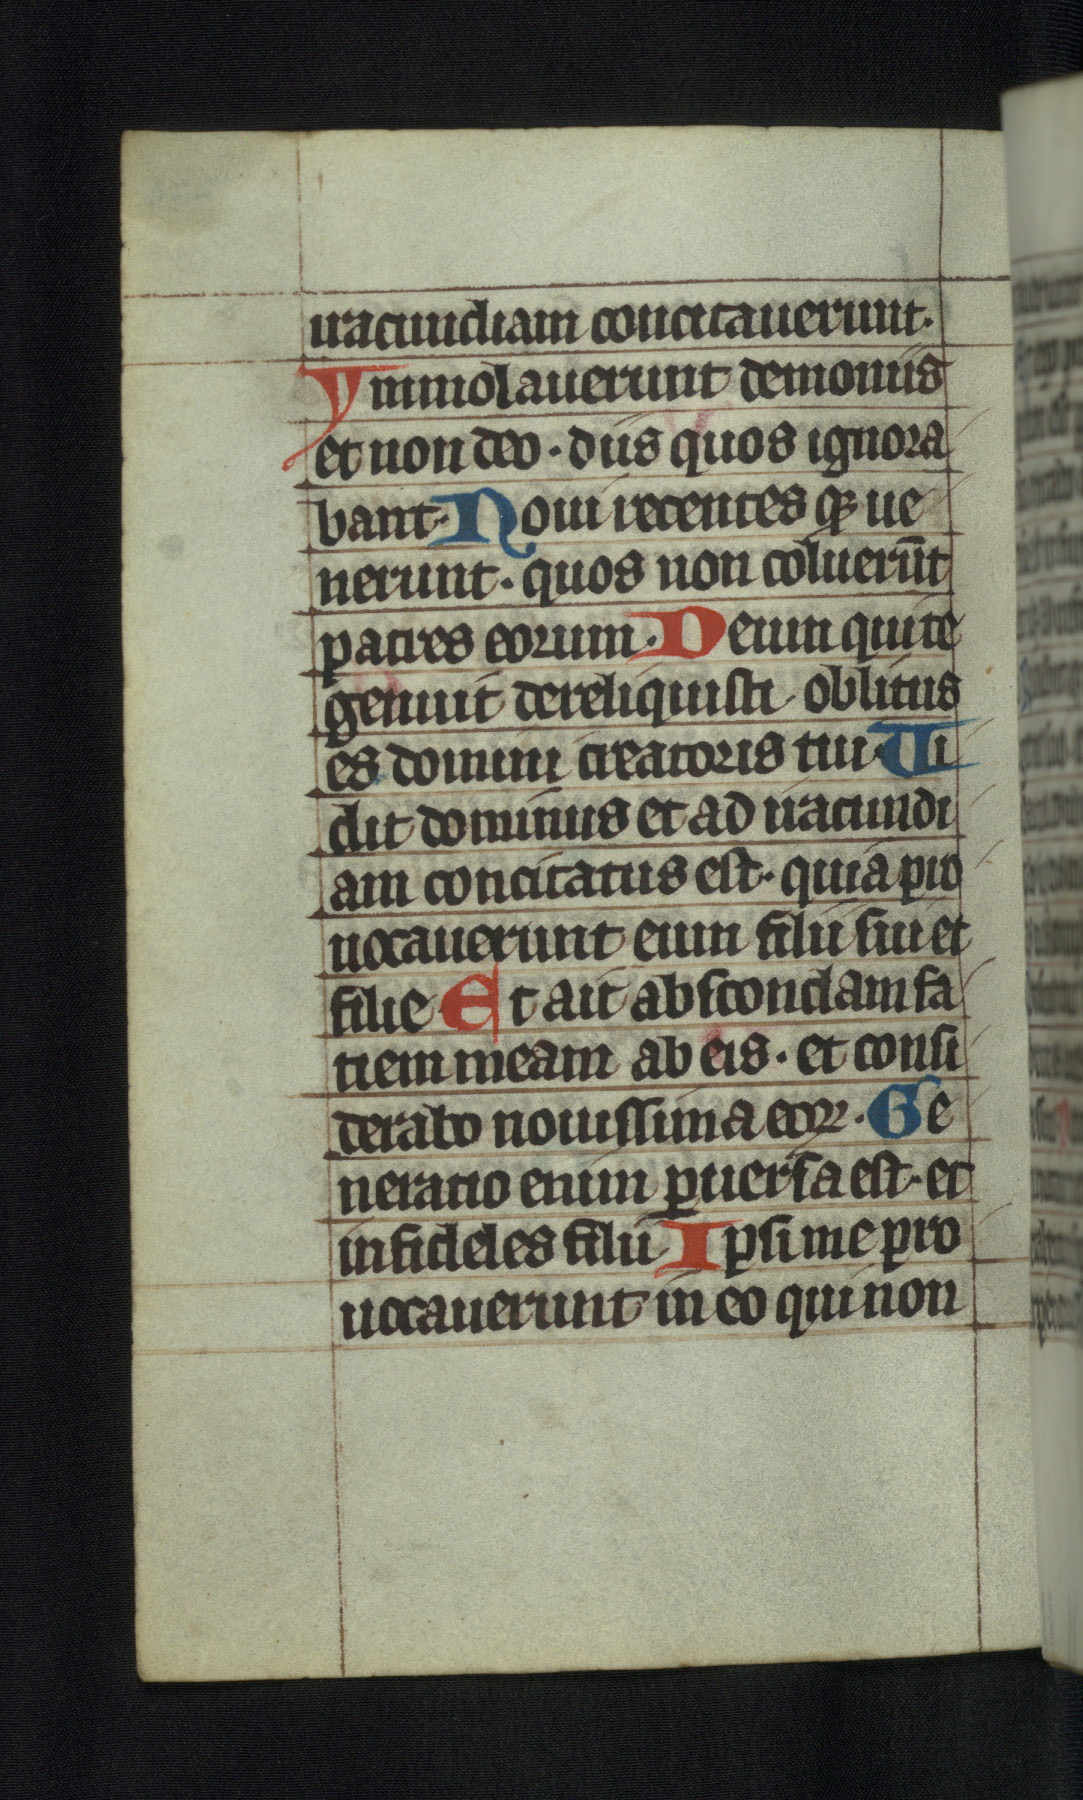 iracundiam concitauerunt.
Ymmolauerunt demoniis
et non deo · diis quos ignora
bant · Noui recentes qꝫ ue
nerunt · quos non coluerūt
patres eorum · Deum qui te
genuit dereliquisti oblitus
es domini creatoris tui · Ui
dit dominus et ad iracundi
am concitatus est · quia pro
uocauerunt eum filii sui et
filie Et ait abscondam fa
tiem meam ab eis · et consi
derabo nouissima eoꝝ · Ge
neratio enim ꝑuersa est · et
infideles filii Ipsi me pro
uocauerunt in eo qui non